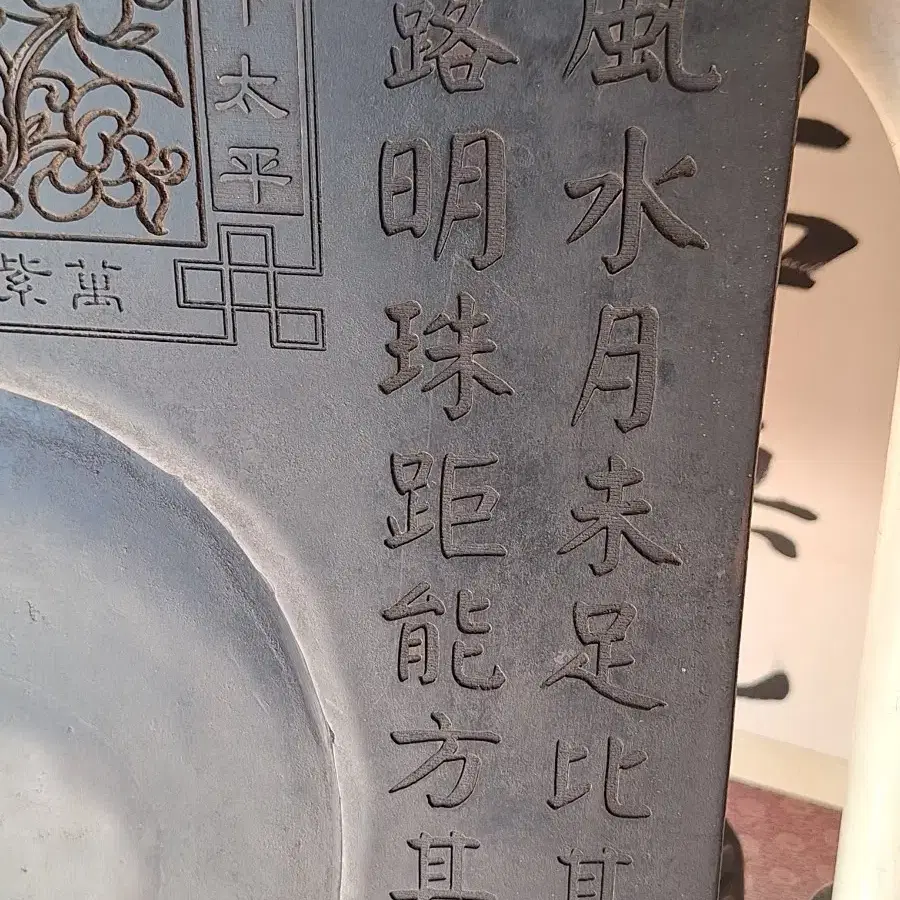 風水月未足比其
露明珠距能方其
太平
萬紫